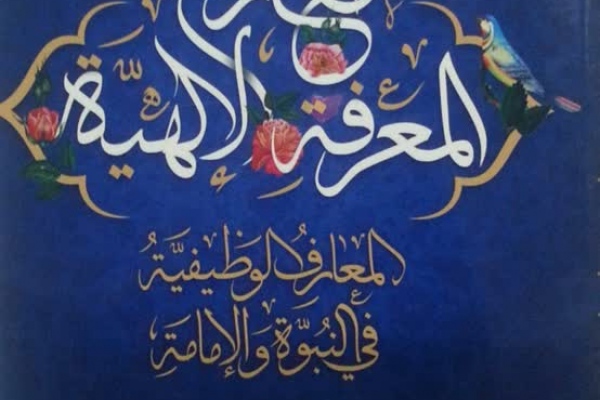 في
المعرفة الإلهيّة
المعارف الوظيفيَّةُ
في النبوَّة وَالإمامَةِ